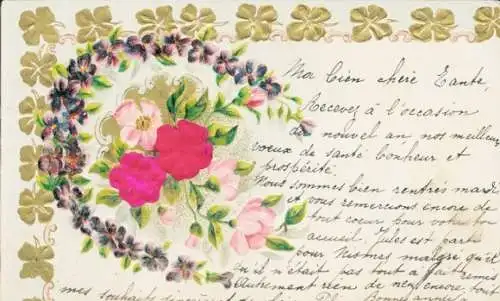 Ma bien chère Tante,
Recevez à l'occasion
du nouvel an nos meilleurs
vœux de santé bonheur et
prospérité.
Nous sommes bien rentrés mardi
et vous remercions encore de
tout cœur pour votre bon
accueil. Jules est parti
pour Nesmes malgré qu'il
n'était pas tout à fait remis
Autrement rien de neuf encore, tous
mes souhaits